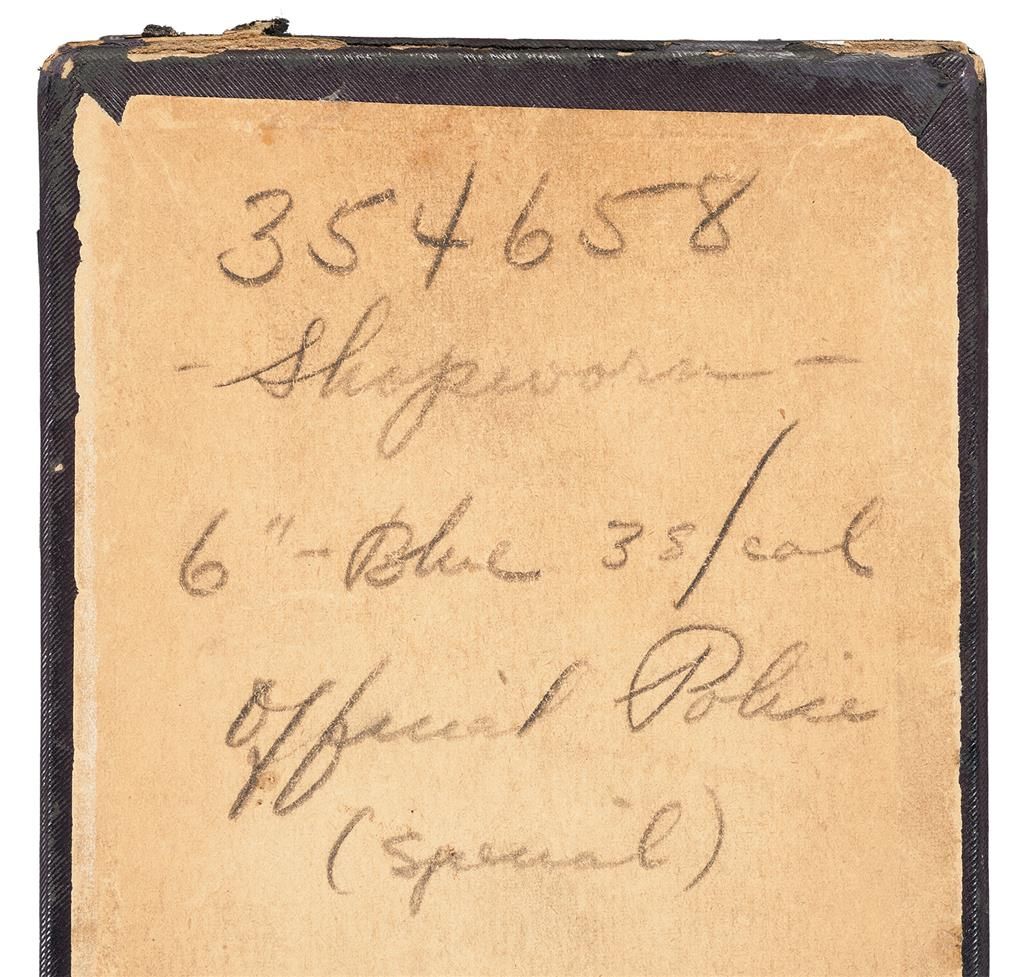 354658
- Shopworn -
6" - Blue 38/cal
Official Police
(Special)